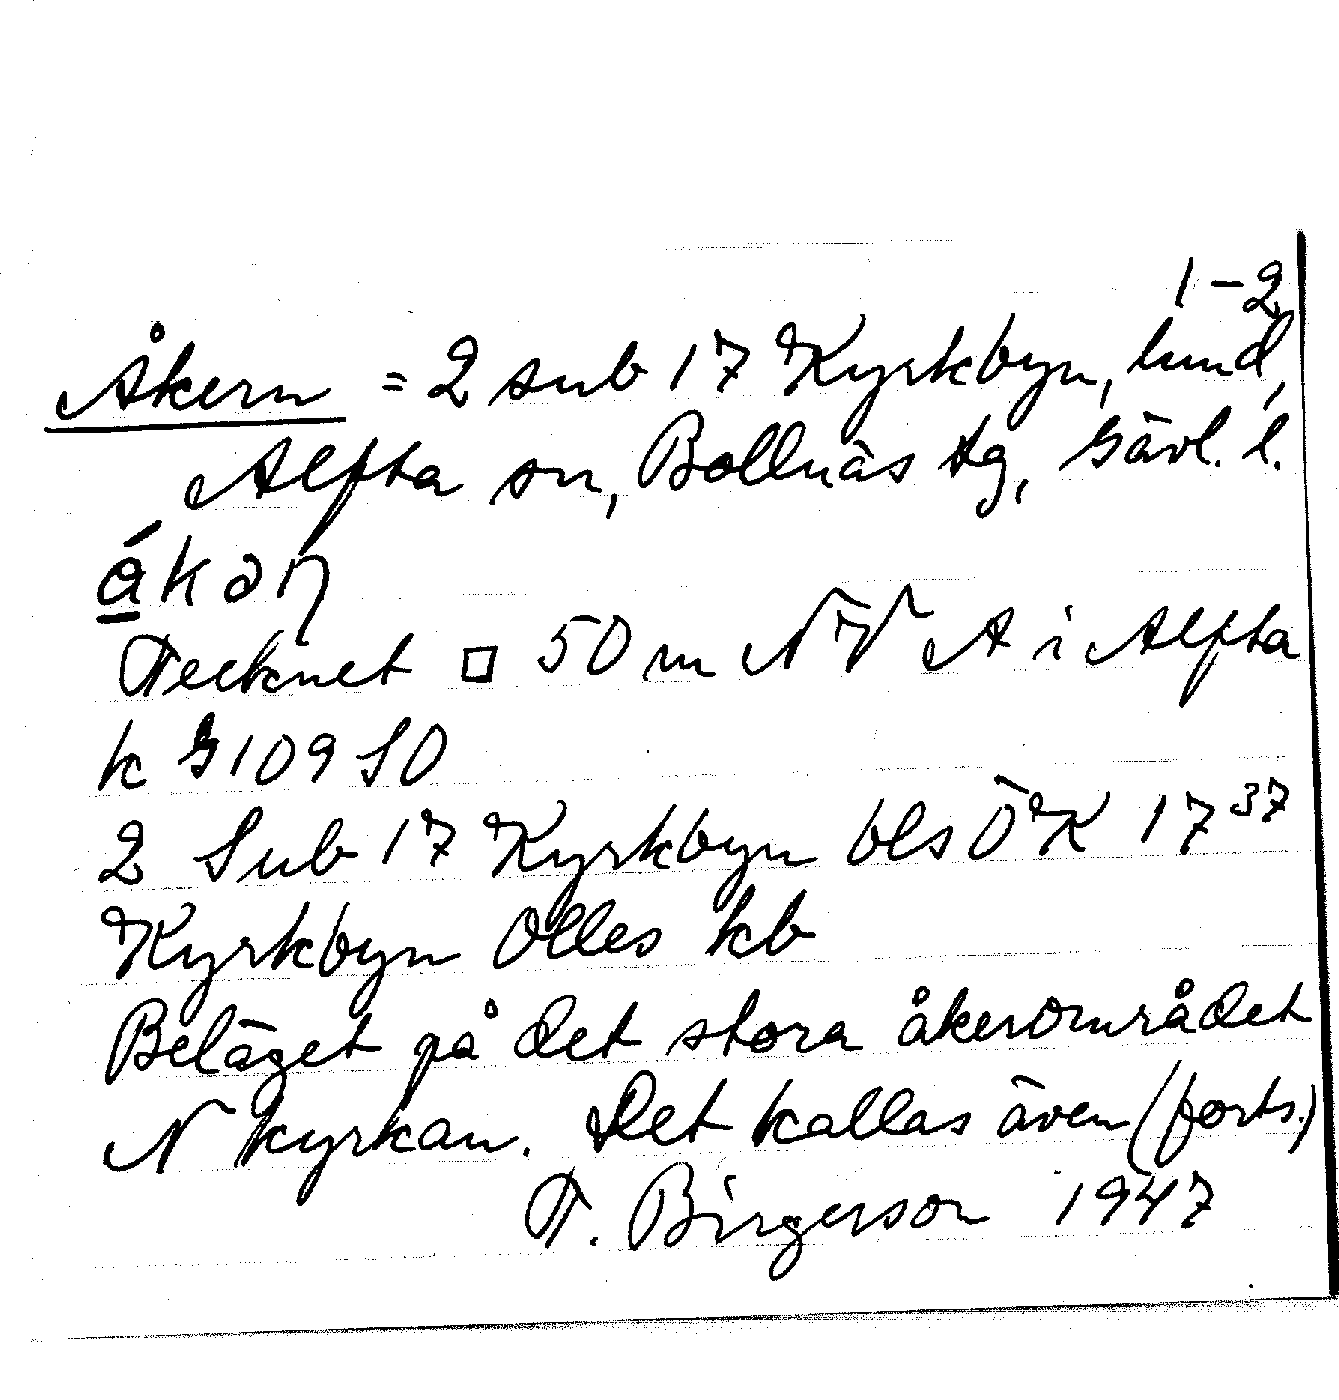 1-2
Åkern = 2 sub 17 Kyrkbyn, lund,
Alfta sn, Bollnäs tg, Gävl. l.
Tecknet □ 50 m NV A i Alfta
k G 109 SO
2 Sub 17 Kyrkbyn bls ÖK 17 37
Kyrkbyn Olles kb
Beläget på det stora åkerområdet
N kyrkan. Det kallas även (forts.)
T. Birgerson 1947